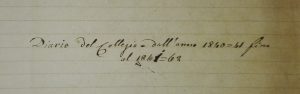 Diario del Collegio = dall'anno 1840=41 fino
al 1841=62